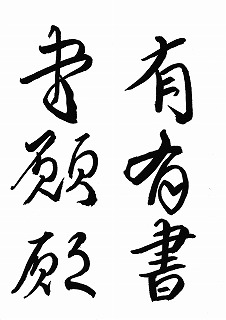 有有書
書願願